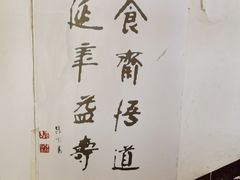 食齋悟道
延年益壽